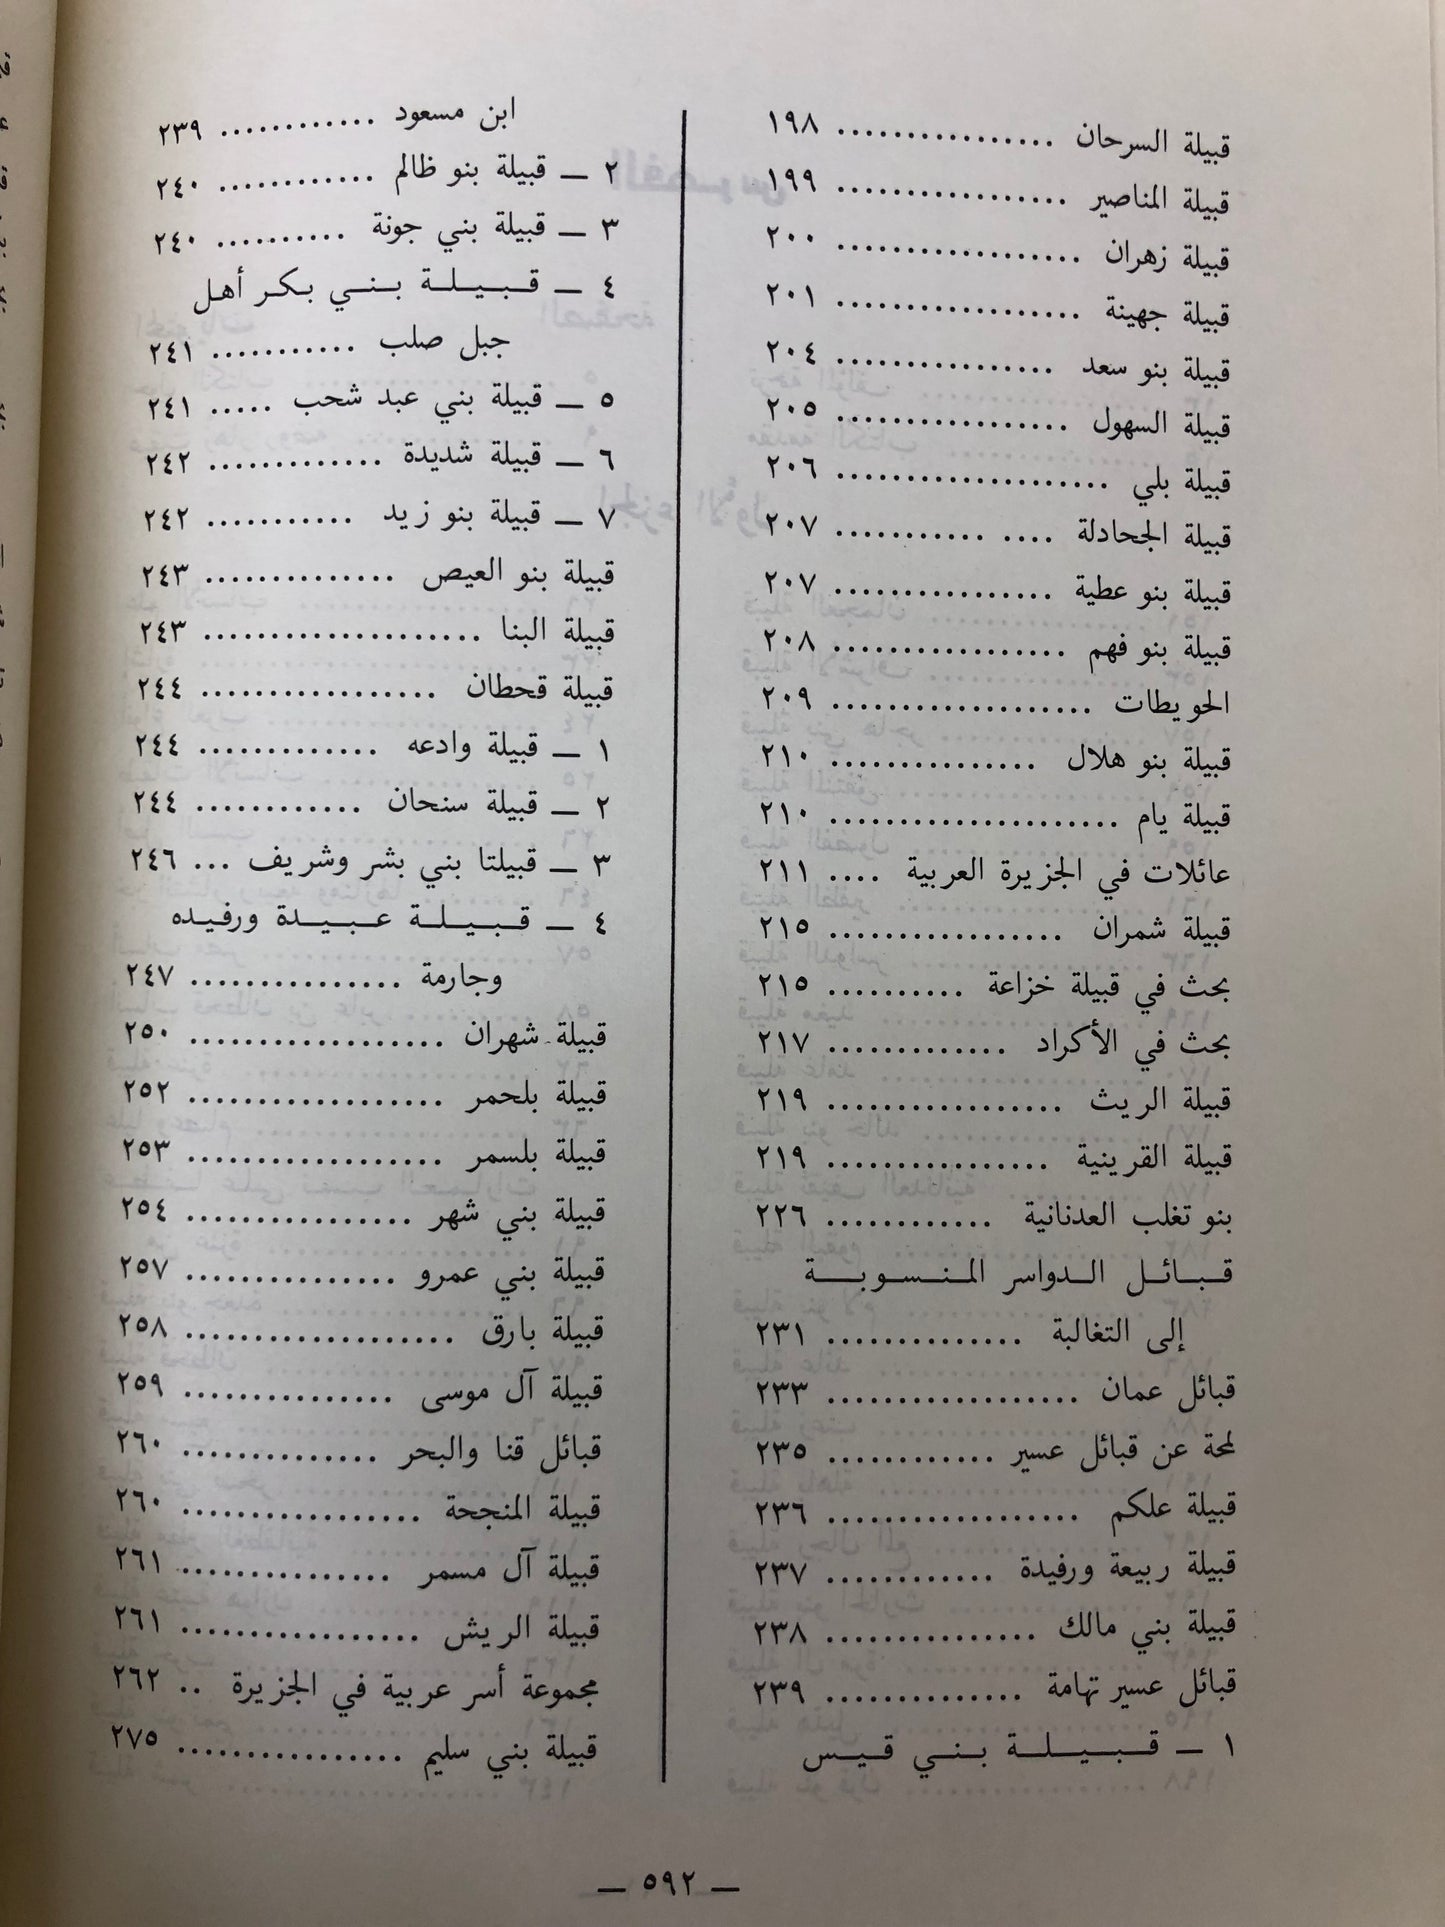 قبيلة السرحان ................ ١٩٨
قبيلة المناصير ................. ١٩٩
قبيلة زهران .................. ٢٠٠
قبيلة جهينة .................. ٢٠١
قبيلة بنو سعد ................ ٢٠٤
قبيلة السهول ................. ٢٠٥
قبيلة بلي .................... ٢٠٦
قبيلة الجحادلة .... ........... ٢٠٧
قبيلة بنو عطية ................ ٢٠٧
قبيلة بنو فهم ................. ٢٠٨
الحويطات ................... ٢٠٩
قبيلة بنو هلال ............... ٢١٠
قبيلة يام ..................... ٢١٠
عائلات في الجزيرة العربية .... ٢١١
قبيلة شمران ................. ٢١٥
بحث في قبيلة خزاعة .......... ٢١٥
بحث في الأكراد ............. ٢١٧
قبيلة الريث ................. ٢١٩
قبيلة القرينية ................ ٢١٩
بنو تغلب العدنانية ............ ٢٢٦
قبائل الدواسر المنسوبة
إلى التغالبة ............... ٢٣١
قبائل عمان .................. ٢٣٣
لمحة عن قبائل عسير ............ ٢٣٥
قبيلة علكم .................. ٢٣٦
قبيلة ربيعة ورفيدة ............ ٢٣٧
قبيلة بني مالك ............... ٢٣٨
قبائل عسير تهامة .............. ٢٣٩
١ ـ قبيلة بني قيس
ابن مسعود ............ ٢٣٩
٢ ـ قبيلة بنو ظالم ............ ٢٤٠
٣ ـ قبيلة بني جونة .......... ٢٤٠
٤ ـ قبيلة بني بكر أهل
جبل صلب ........... ٢٤١
٥ ـ قبيلة بني عبد شحب ..... ٢٤١
٦ ـ قبيلة شديدة ............. ٢٤٢
٧ ـ قبيلة بنو زيد ........... ٢٤٢
قبيلة بنو العيص .............. ٢٤٣
قبيلة البنا .................... ٢٤٣
قبيلة قحطان ................. ٢٤٤
١ ـ قبيلة وادعه ............. ٢٤٤
٢ ـ قبيلة سنحان ............ ٢٤٤
٣ ـ قبيلتا بني بشر وشريف ... ٢٤٦
٤ ـ قبيلة عبيدة ورفيده
وجارمة ................ ٢٤٧
قبيلة شهران ................... ٢٥٠
قبيلة بلحمر ................... ٢٥٢
قبيلة بلسمر ................... ٢٥٣
قبيلة بني شهر ................. ٢٥٤
قبيلة بني عمرو ................ ٢٥٧
قبيلة بارق .................... ٢٥٨
قبيلة آل موسى ................ ٢٥٩
قبائل قنا والبحر .............. ٢٦٠
قبيلة المنجحة .................. ٢٦٠
قبيلة آل مسمر ................ ٢٦١
قبيلة الريش .................. ٢٦١
مجموعة أسر عربية في الجزيرة .. ٢٦٢
قبيلة بني سليم ................. ٢٧٥
ـ ٥٩٢ ـ